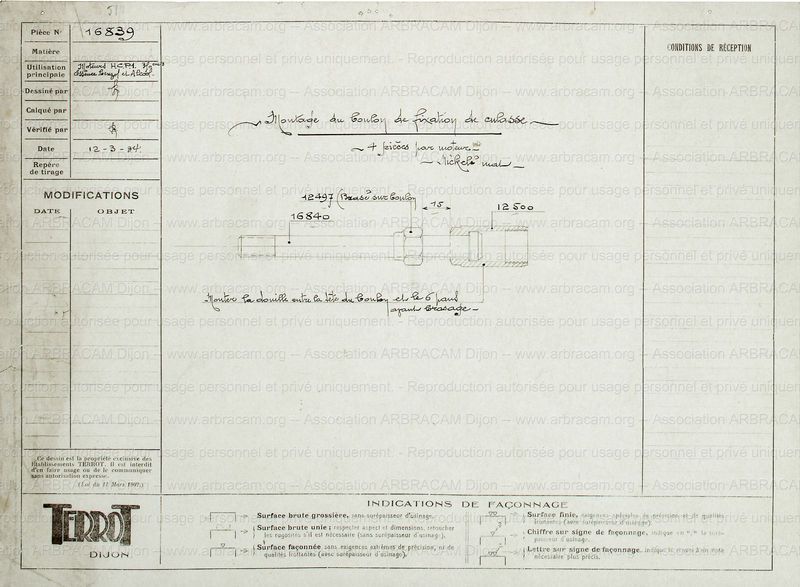 Pièce N° 16839
Matière
Utilisation principale Moteurs H.C.P.1.
Dessiné par
Calqué par
Vérifié par
Date 12-3-24.
Repère de tirage
MODIFICATIONS
DATE OBJET
CONDITIONS DE RÉCEPTION
Montage du boulon de fixation de culasse
4 pièces par moteur
Nickelé mat
12497 (Brasé sur boulon
15
12500
16840
Monter la douille entre la tête du boulon et le 6 pans
avant brasage
Ce dessin est la propriété exclusive des
Etablissements TERROT. Il est interdit
d'en faire usage ou de le communiquer
sans autorisation expresse.
(Loi du 11 Mars 1902.)
TERROT
DIJON
INDICATIONS DE FAÇONNAGE
Surface brute grossière, sans surépaisseur d'usinage.
Surface brute unie; respecter aspect et dimensions, retoucher
les rugosités s'il est nécessaire (sans surépaisseur d'usinage).
Surface façonnée sans exigences extrêmes de précision, ni de
qualités frottantes (avec surépaisseur d'usinage).
Surface finie, exigences spéciales de précision, et de qualités
frottantes (avec surépaisseur d'usinage).
Chiffre sur signe de façonnage, indique en "/" la surépaisseur d'usinage.
Lettre sur signe de façonnage, indique le renvoi à une note
nécessaire plus précis.
www.arbracam.org – Association ARBRACAM Dijon – www.arbracam.org – Association ARBRACAM Dijon
Reproduction autorisée pour usage personnel et privé uniquement.